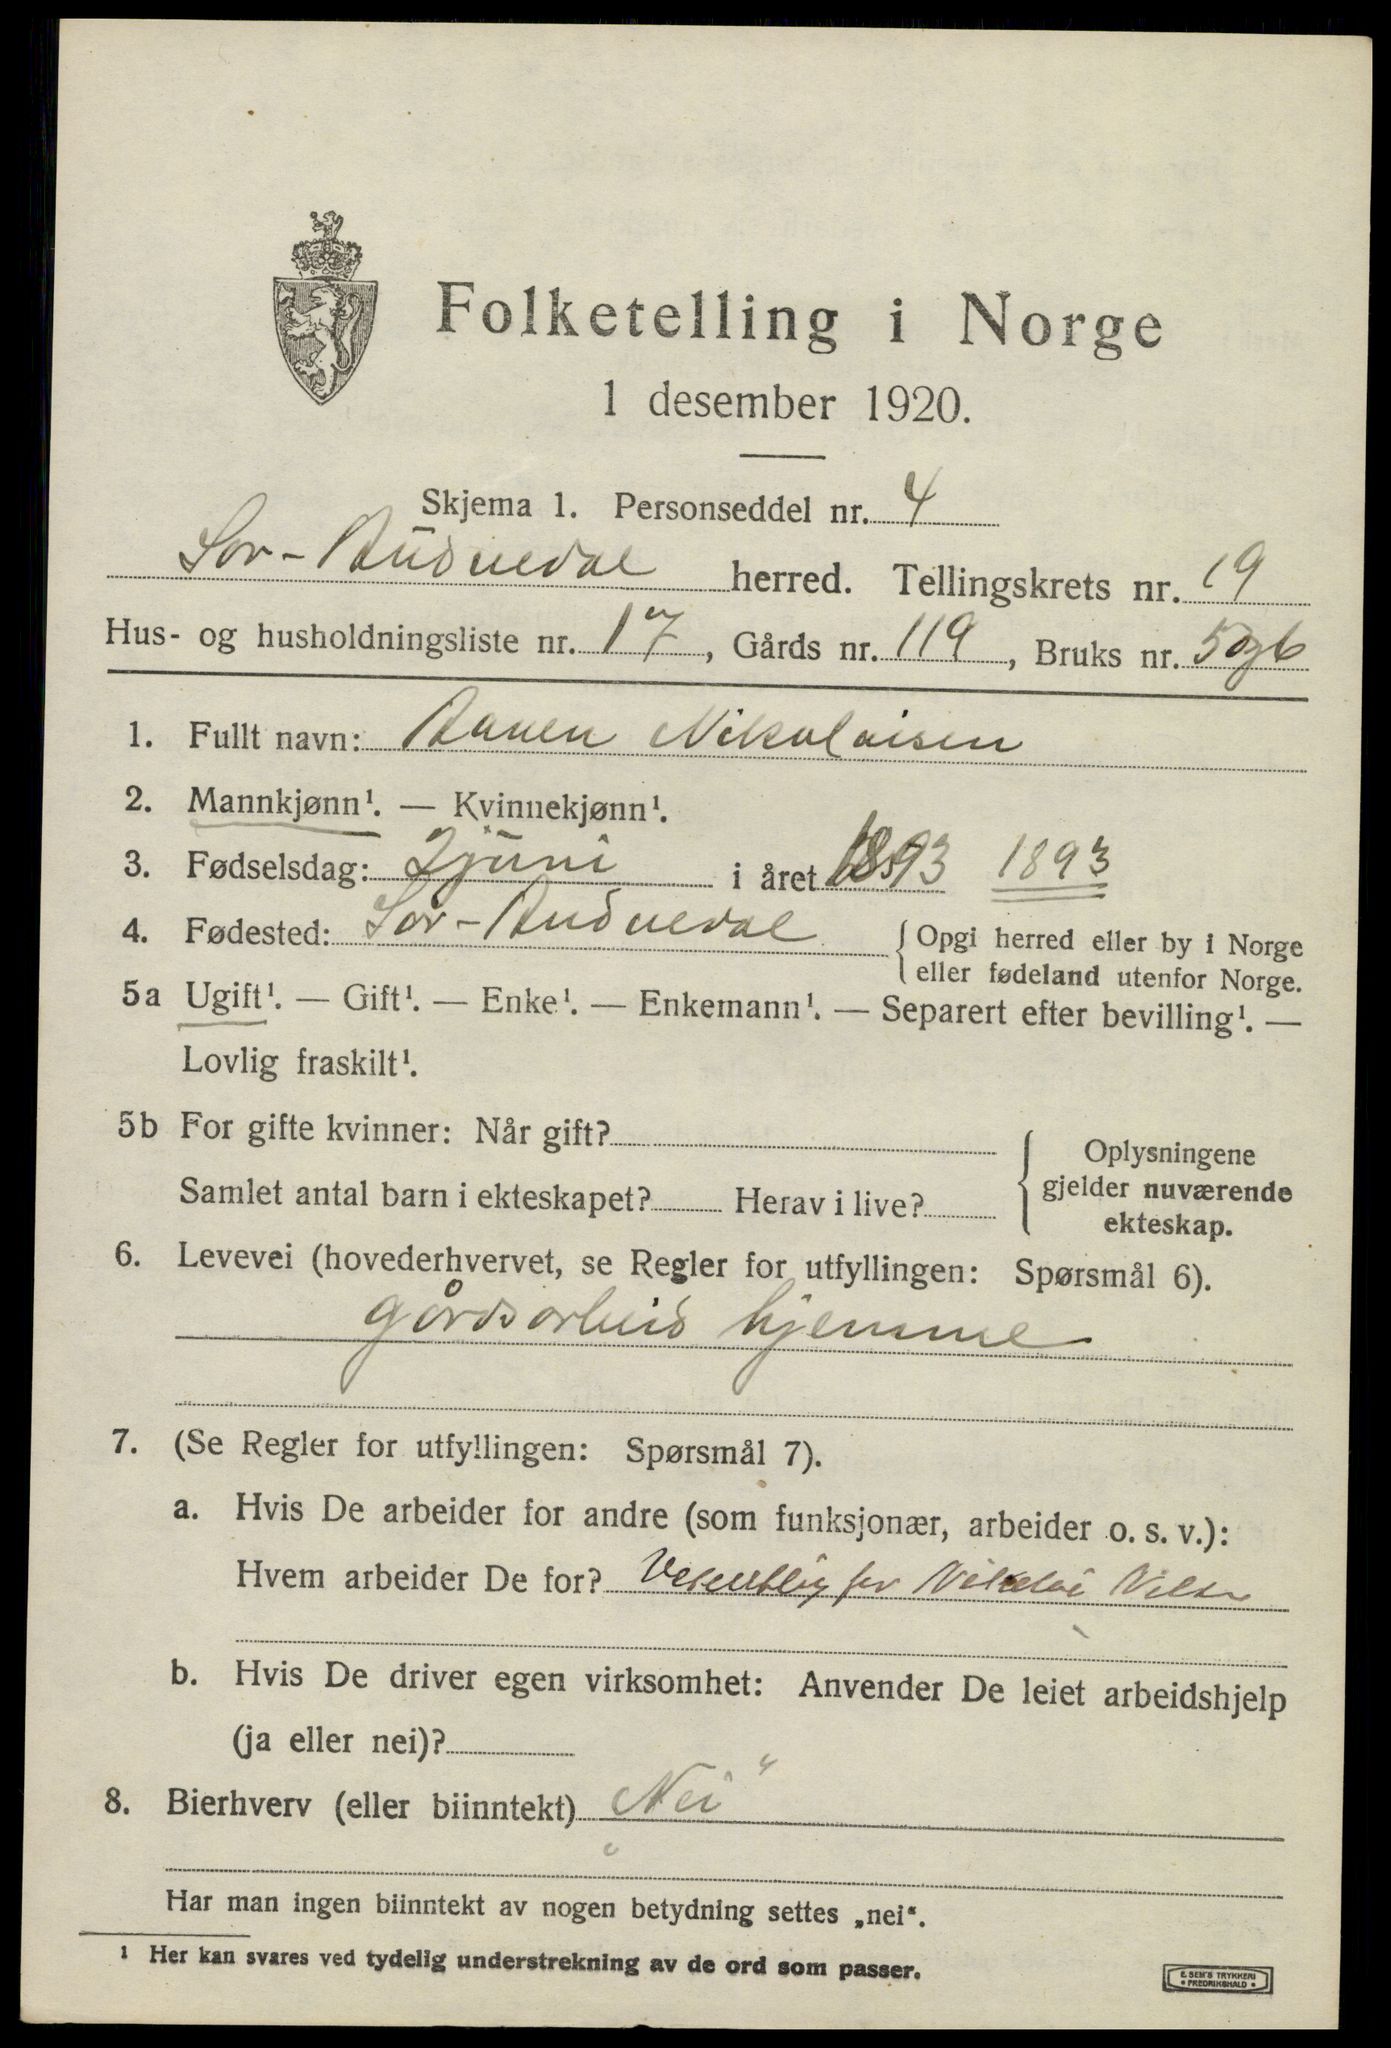 Folketelling i Norge
1 desember 1920.
Skjema 1. Personseddel nr. 4
Sør-Audnedal herred. Tellingskrets nr. 19
Hus- og husholdningsliste nr. 17, Gårds nr. 119, Bruks nr. 5 og 6
1. Fullt navn: Aanen Nikolaisen
2. Mannkjønn¹. — Kvinnekjønn¹.
3. Fødselsdag: 2 juni i året 1893 1893
4. Fødested: Sør-Audnedal
{ Opgi herred eller by i Norge
eller fødeland utenfor Norge.
5a Ugift¹. — Gift¹. — Enke¹. — Enkemann¹. — Separert efter bevilling¹. —
Lovlig fraskilt¹.
5b For gifte kvinner: Når gift?
Samlet antal barn i ekteskapet? Herav i live?
{ Oplysningene
gjelder nuværende
ekteskap.
6. Levevei (hovederhvervet, se Regler for utfyllingen: Spørsmål 6).
gårdsarbeid hjemme
7. (Se Regler for utfyllingen: Spørsmål 7).
a. Hvis De arbeider for andre (som funksjonær, arbeider o. s. v.):
Hvem arbeider De for? for Nikolai
b. Hvis De driver egen virksomhet: Anvender De leiet arbeidshjelp
(ja eller nei)?
8. Bierhverv (eller biinntekt) „Nei“
Har man ingen biinntekt av nogen betydning settes „nei“.
¹ Her kan svares ved tydelig understrekning av de ord som passer.
E. SEM'S TRYKKERI
• FREDRIKSHALD •